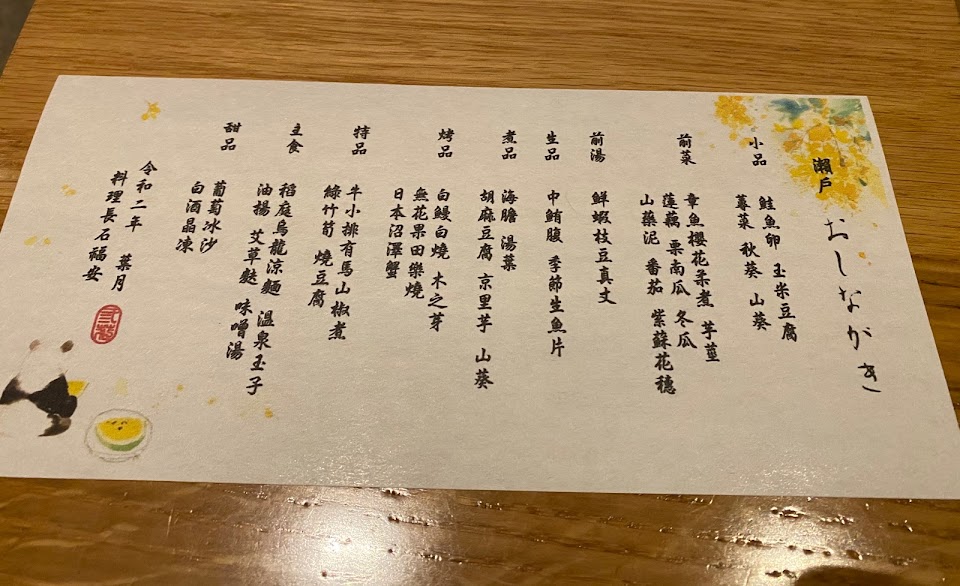 瀬戸 おしながき
小品
鮭魚卵 玉米豆腐
蓴菜 秋葵 山葵
前菜
章魚櫻花柔煮 芋莖
蓮藕 栗南瓜 冬瓜
山藥泥 番茄 紫蘇花穗
前湯
鮮蝦枝豆真丈
生品
中鮪腹 季節生魚片
煮品
海膽 湯葉
胡麻豆腐 京里芋 山葵
烤品
白鰻白燒 木之芽
無花果田樂燒
日本沼澤蟹
特品
牛小排有馬山椒煮
綠竹筍 燒豆腐
主食
稻庭烏龍涼麵 溫泉玉子
油揚 艾草麩 味噌湯
甜品
葡萄冰沙
白酒晶凍
令和二年 葉月
料理長石福安